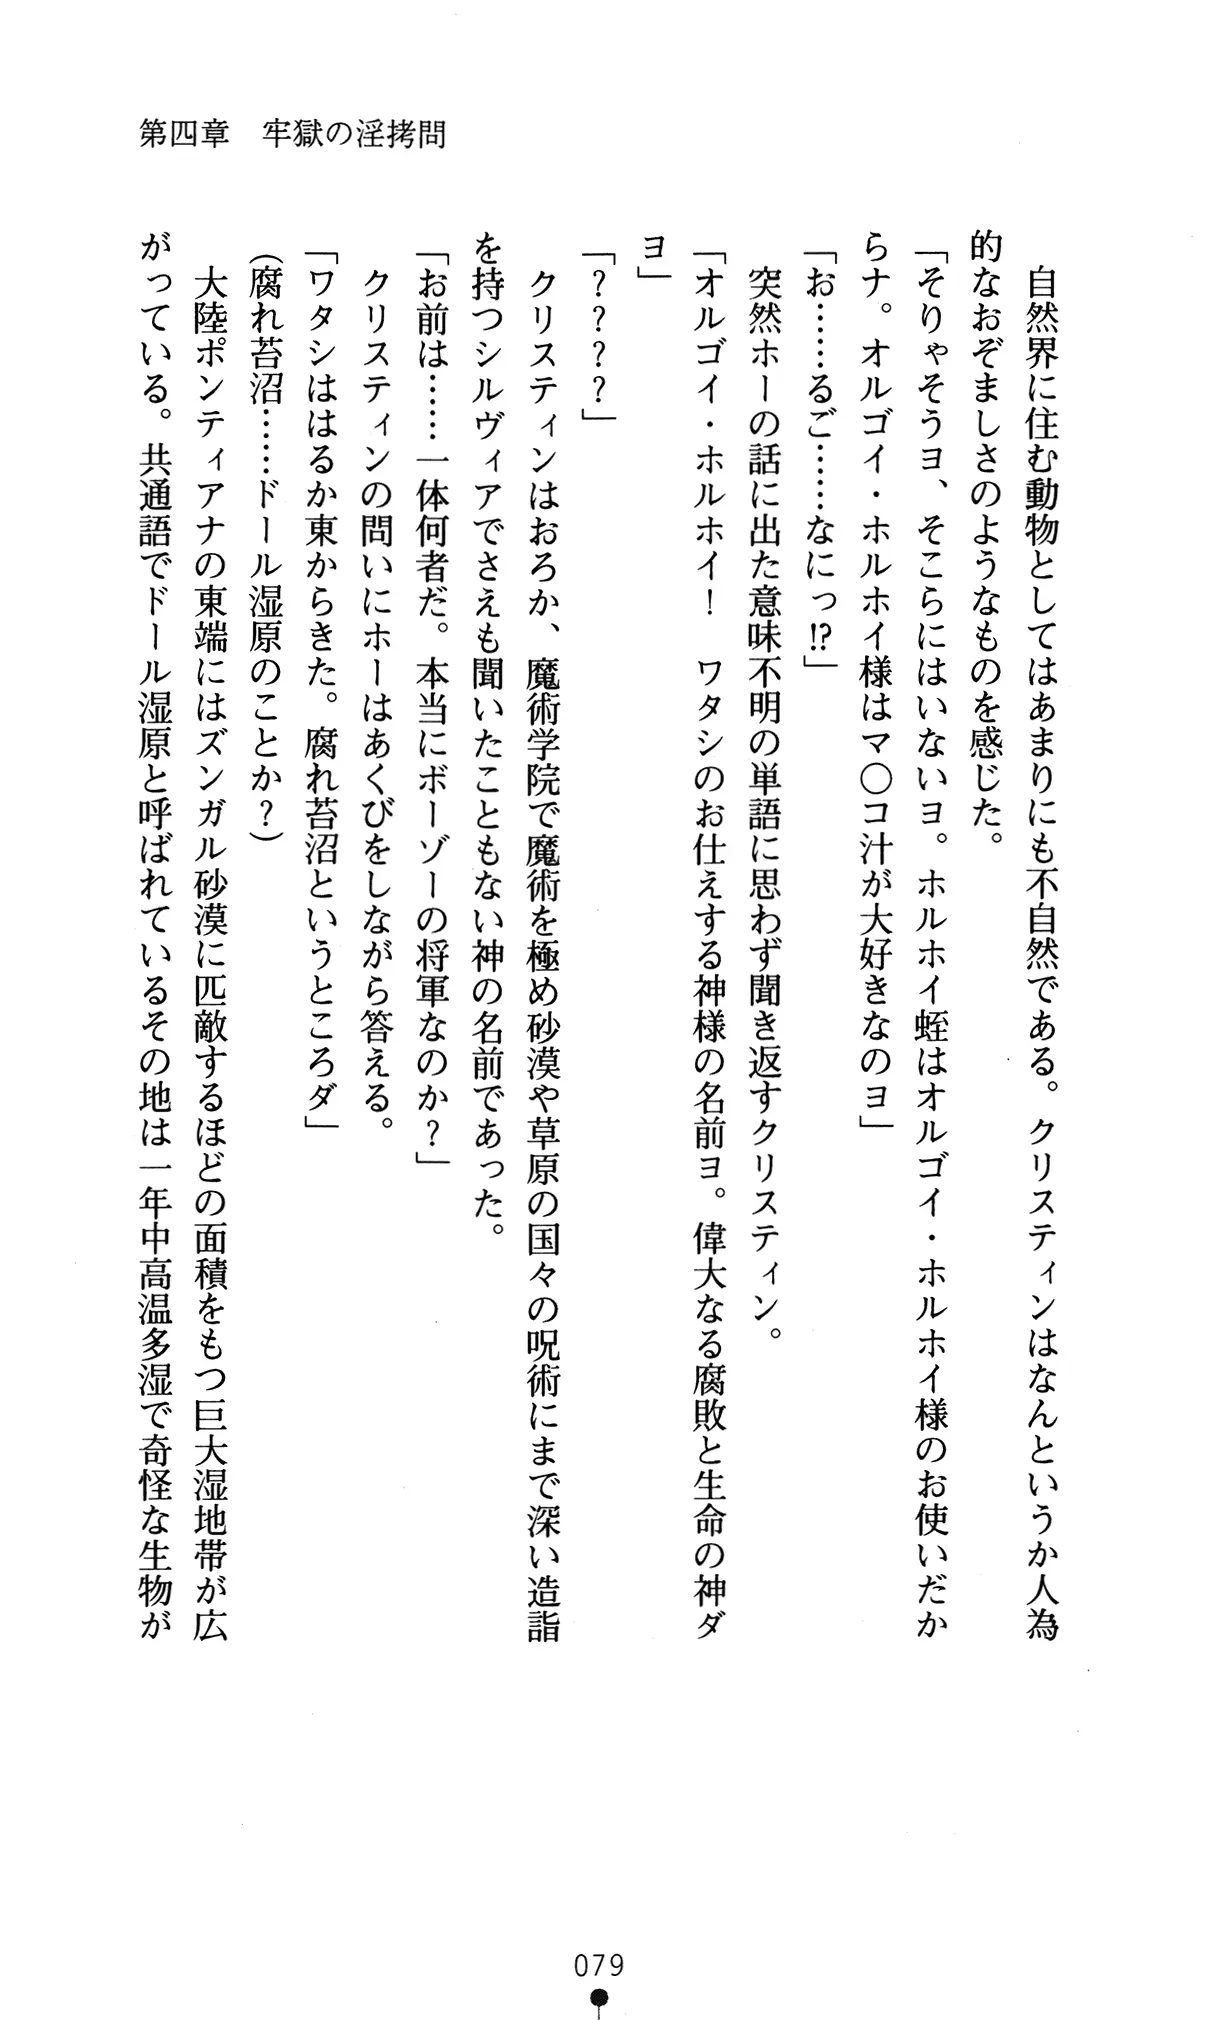 第四章　牢獄の淫拷問
　自然界に住む動物としてはあまりにも不自然である。クリスティンはなんというか人為
的なおぞましさのようなものを感じた。
「そりゃそうヨ、そこらにはいないヨ。ホルホイ蛭はオルゴイ・ホルホイ様のお使いだか
らナ。オルゴイ・ホルホイ様はマ〇コ汁が大好きなのヨ」
「お……るご……なにっ!?」
　突然ホーの話に出た意味不明の単語に思わず聞き返すクリスティン。
「オルゴイ・ホルホイ！　ワタシのお仕えする神様の名前ヨ。偉大なる腐敗と生命の神ダ
ヨ」
「？？？？」
　クリスティンはおろか、魔術学院で魔術を極め砂漠や草原の国々の呪術にまで深い造詣
を持つシルヴィアでさえも聞いたこともない神の名前であった。
「お前は……一体何者だ。本当にボーゾーの将軍なのか？」
　クリスティンの問いにホーはあくびをしながら答える。
「ワタシははるか東からきた。腐れ苔沼というところダ」
（腐れ苔沼……ドール湿原のことか？）
　大陸ポンティアナの東端にはズンガル砂漠に匹敵するほどの面積をもつ巨大湿地帯が広
がっている。共通語でドール湿原と呼ばれているその地は一年中高温多湿で奇怪な生物が
079